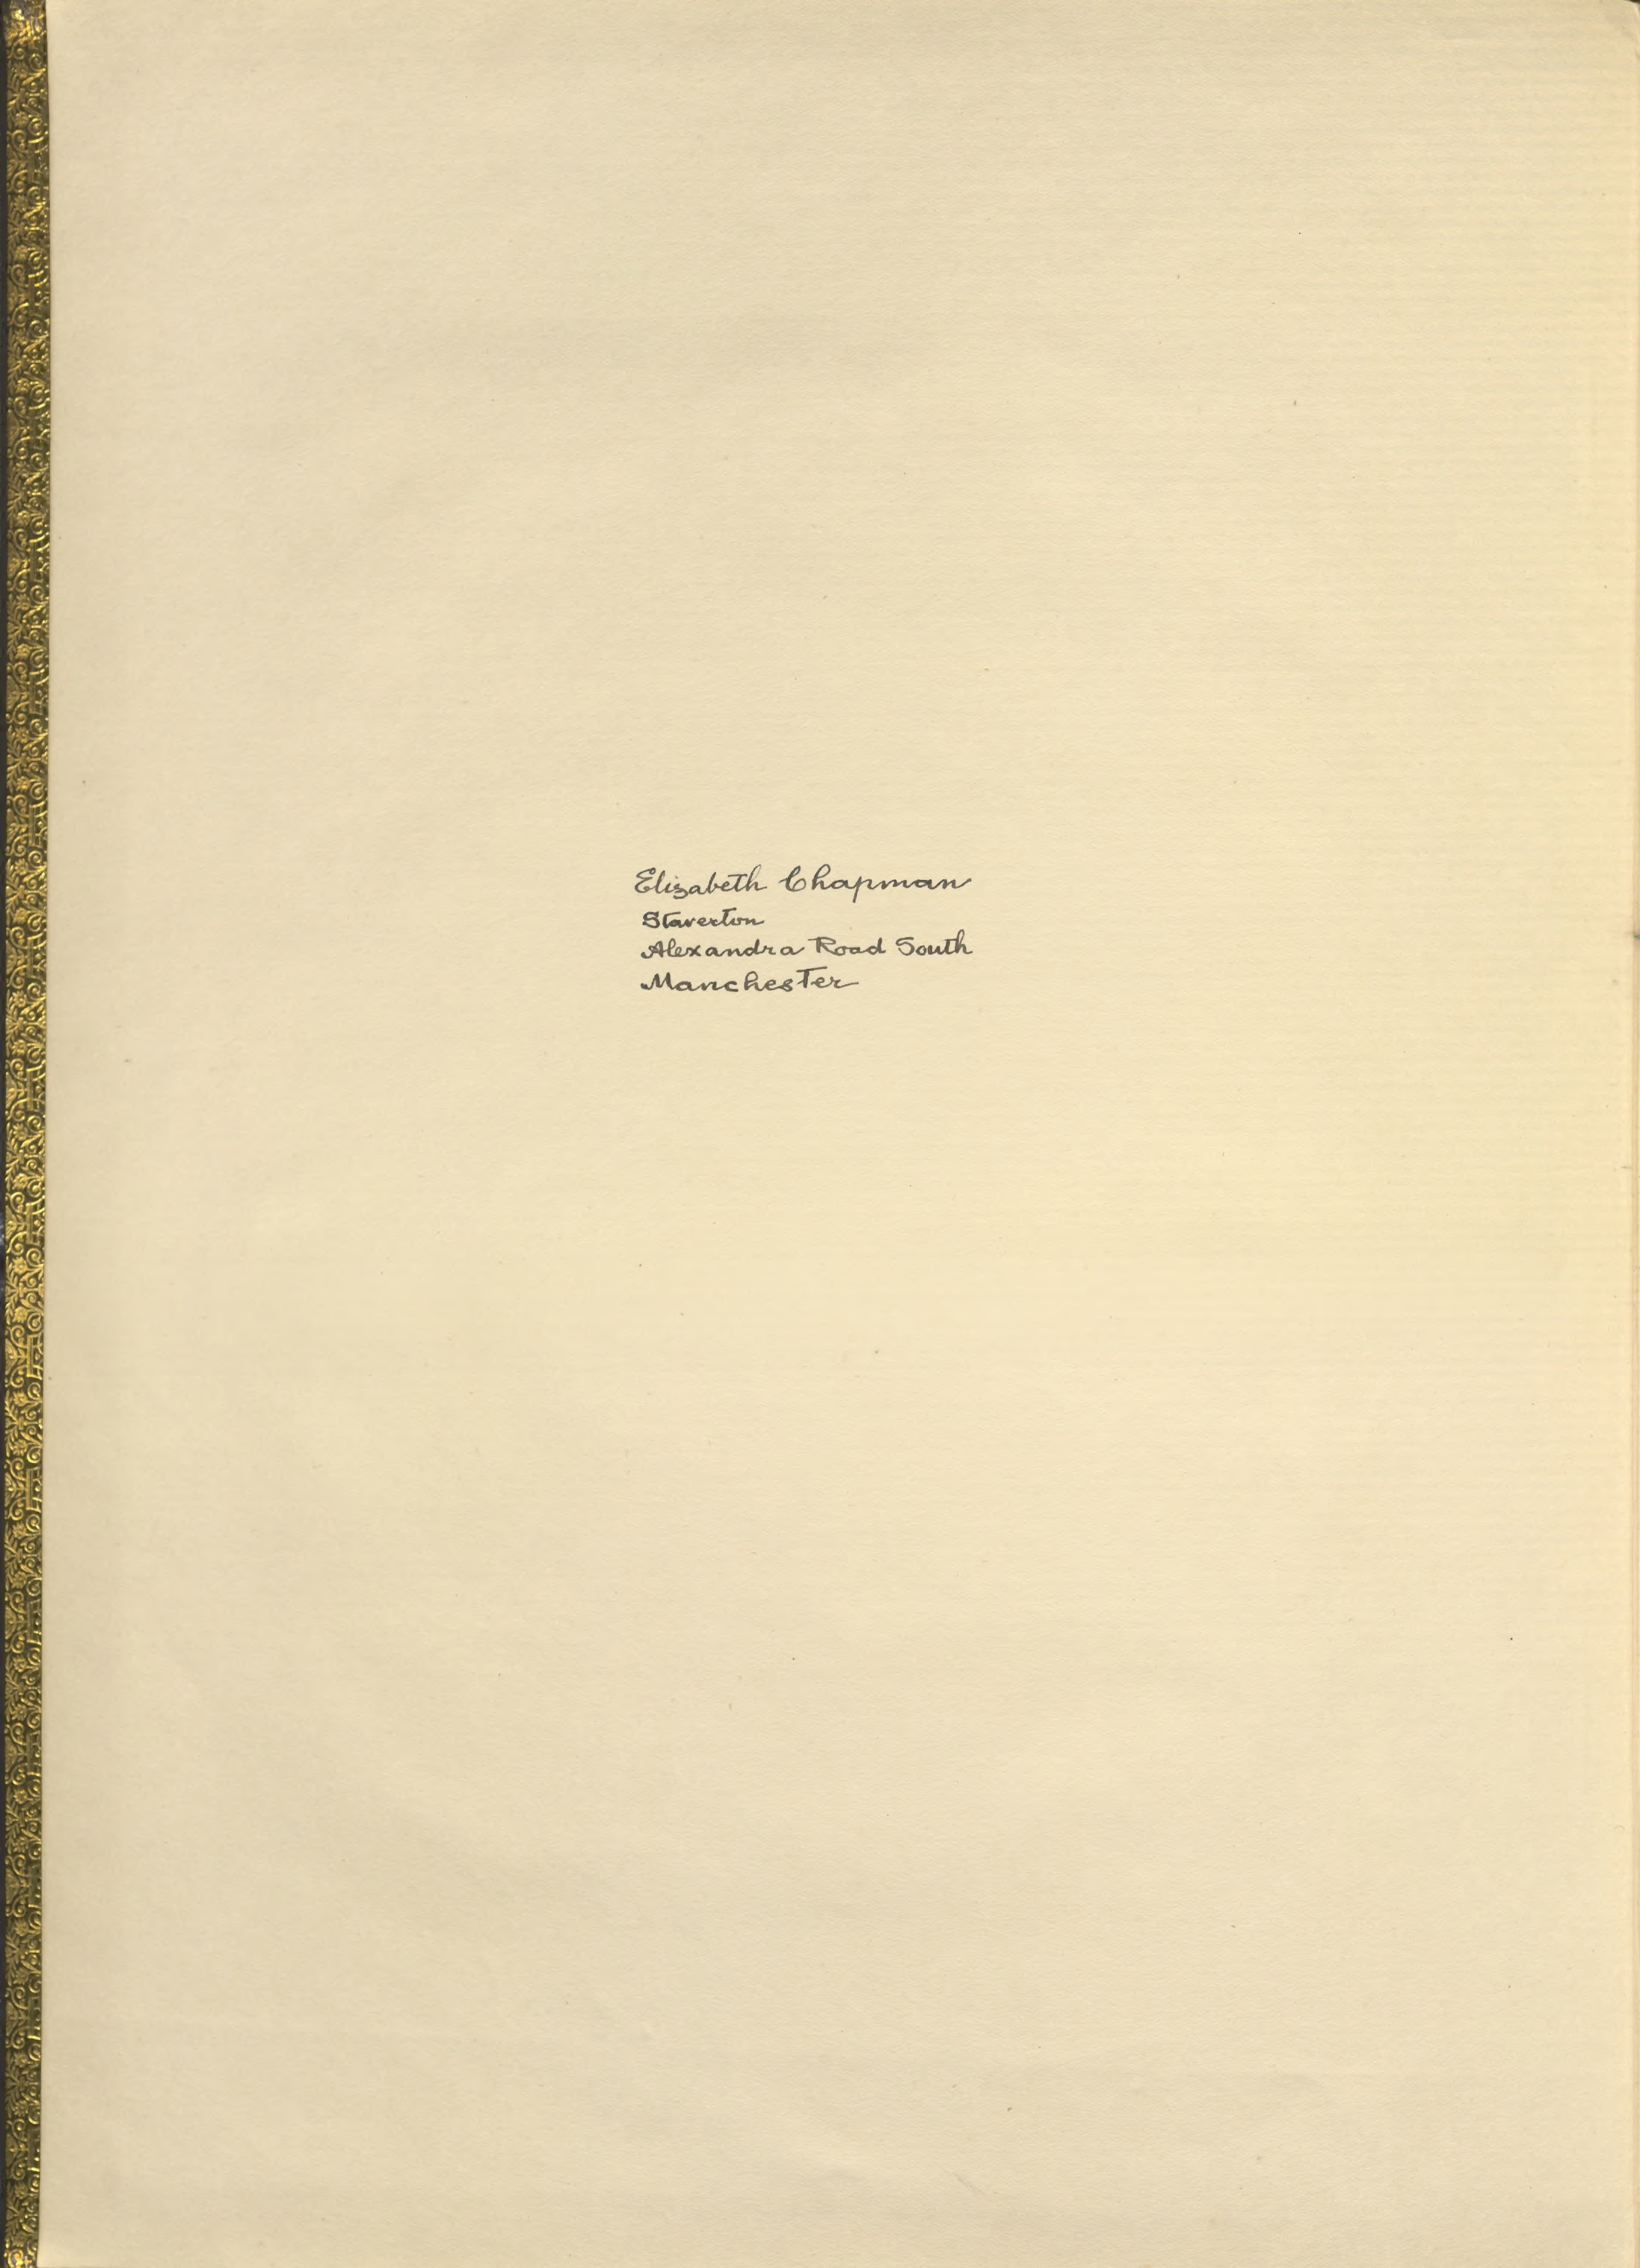 Elizabeth Chapman
Staverton
Alexandra Road South
Manchester